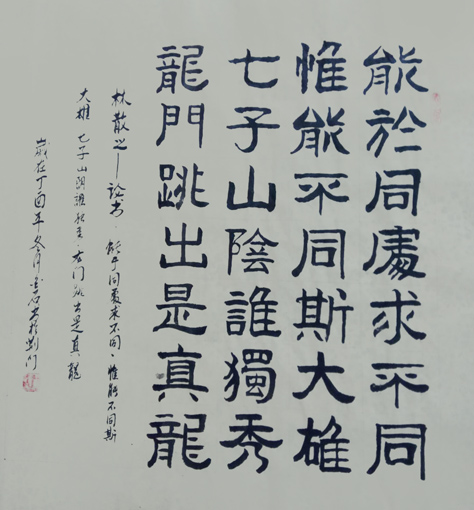 能於同處求不同
惟能不同斯大雄
七子山陰誰獨秀
龍門跳出是真龍
林散之一论书·能于同處求不同、惟能不同斯
大雄 七子山阴誰独秀·龙门跳出是真龍
歲在丁酉年冬月石书於荆门